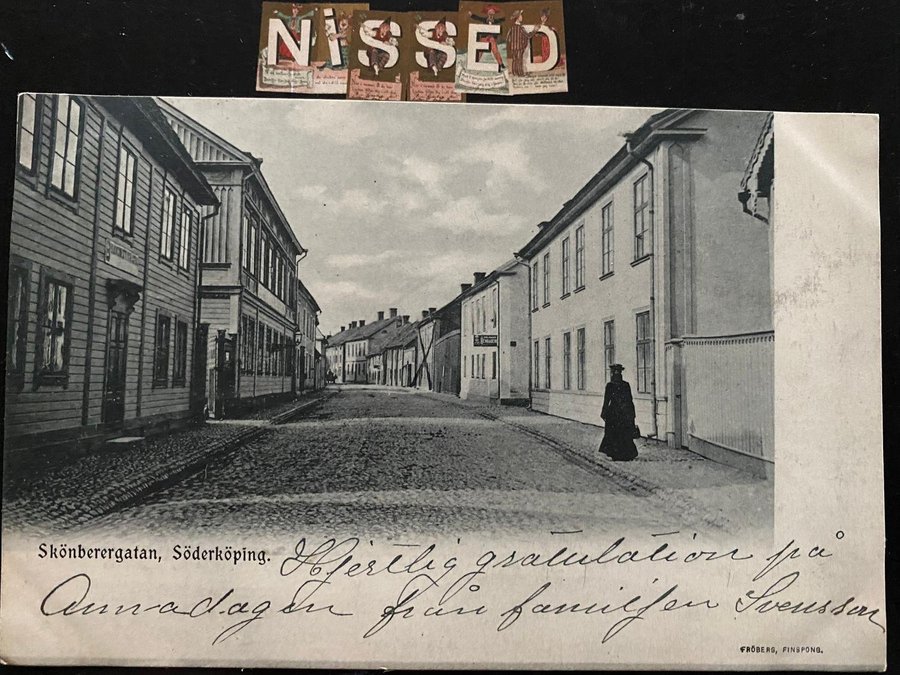 NiSSED
Skönberergatan, Söderköping.
Hjertlig gratulation på
Annadagen från familjen Svensson
FRÖBERG, FINSPONG.